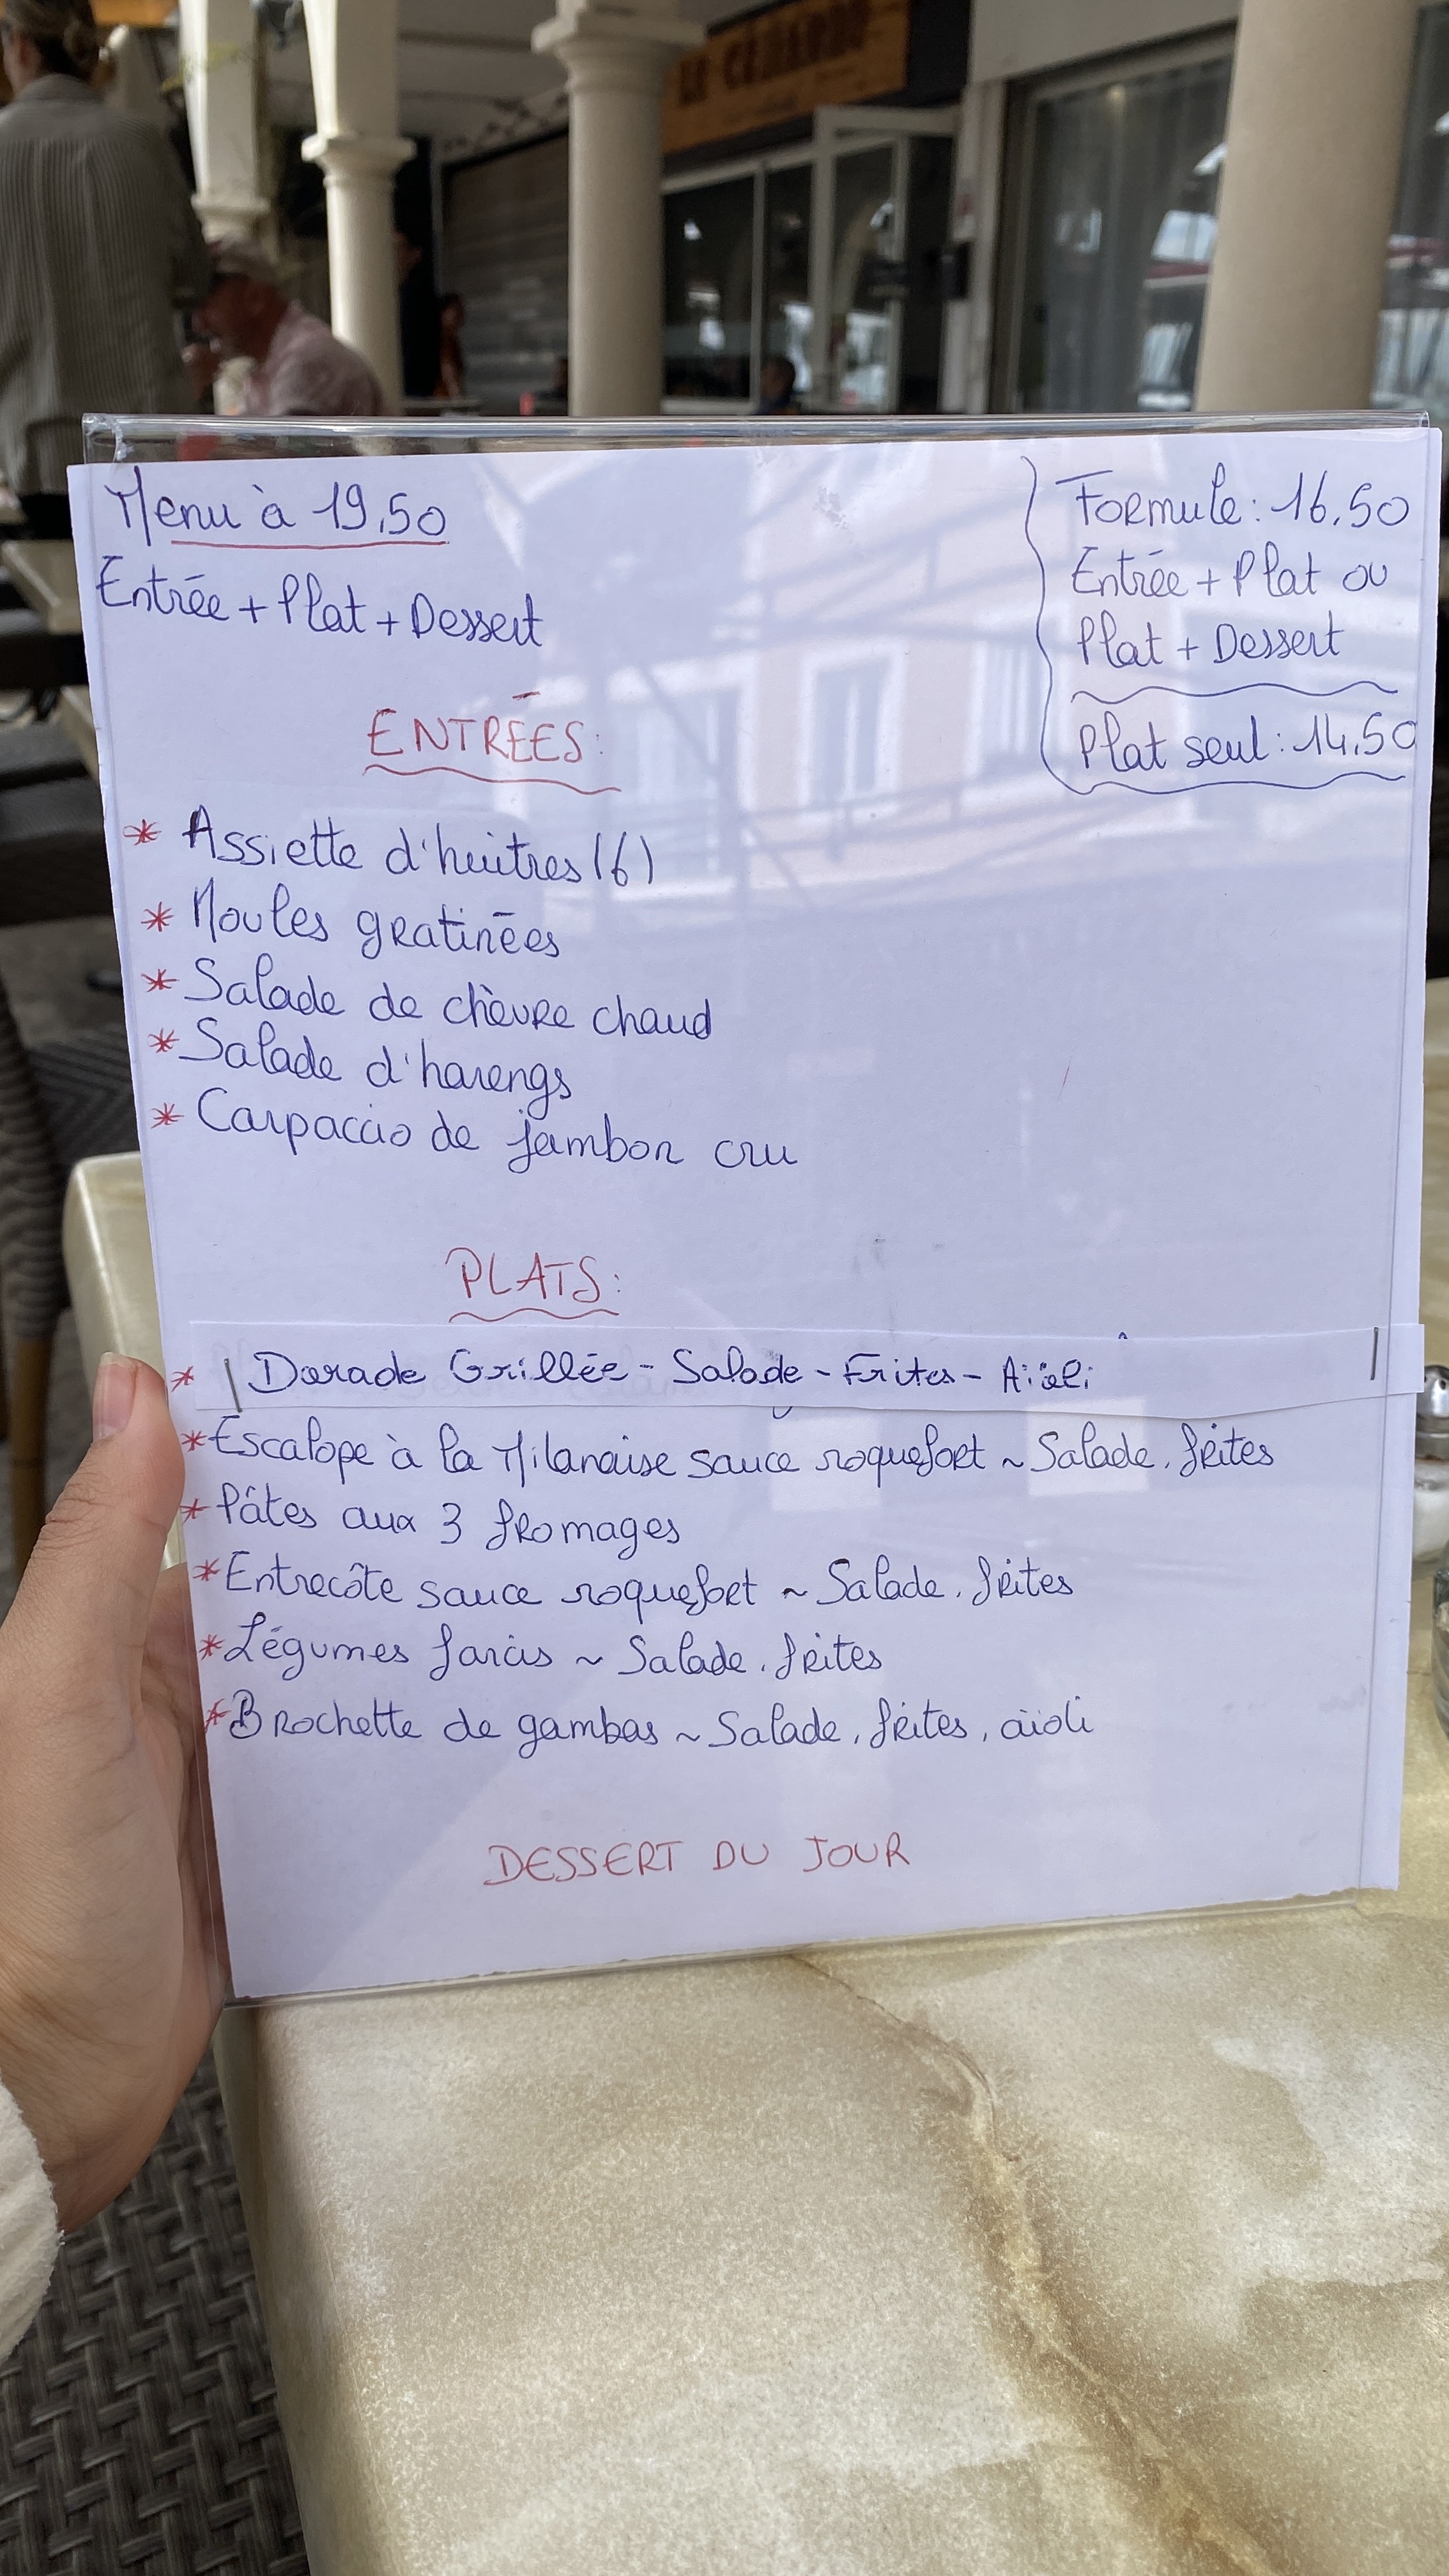 Menu à 19,50
Entrée + Plat + Dessert
Formule : 16,50
Entrée + Plat ou
Plat + Dessert
Plat seul : 14,50
ENTRÉES :
* Assiette d'huitres (6)
* Moules gratinées
* Salade de chèvre chaud
* Salade d'harengs
* Carpaccio de jambon cru
PLATS :
* Dorade Grillée - Salade - Frites - Aïoli
* Escalope à la Milanaise sauce roquefort ~ Salade, frites
* Pâtes aux 3 fromages
* Entrecôte sauce roquefort ~ Salade, frites
* Légumes farcis ~ Salade, frites
* Brochette de gambas ~ Salade, frites, aïoli
DESSERT DU JOUR